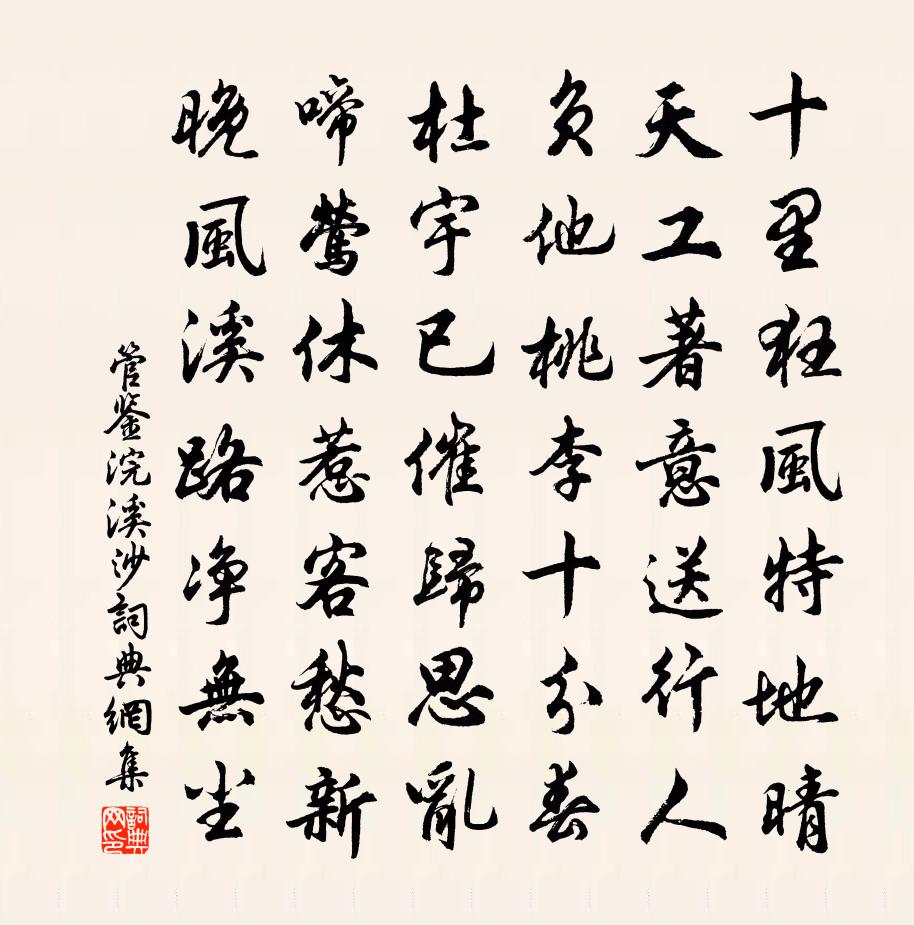 十里狂風特地晴
天工著意送行人
負他桃李十分春
杜宇已催歸思亂
啼鶯休惹客愁新
晚風溪路净無尘
管鉴浣溪沙詞典網集
詞典网印